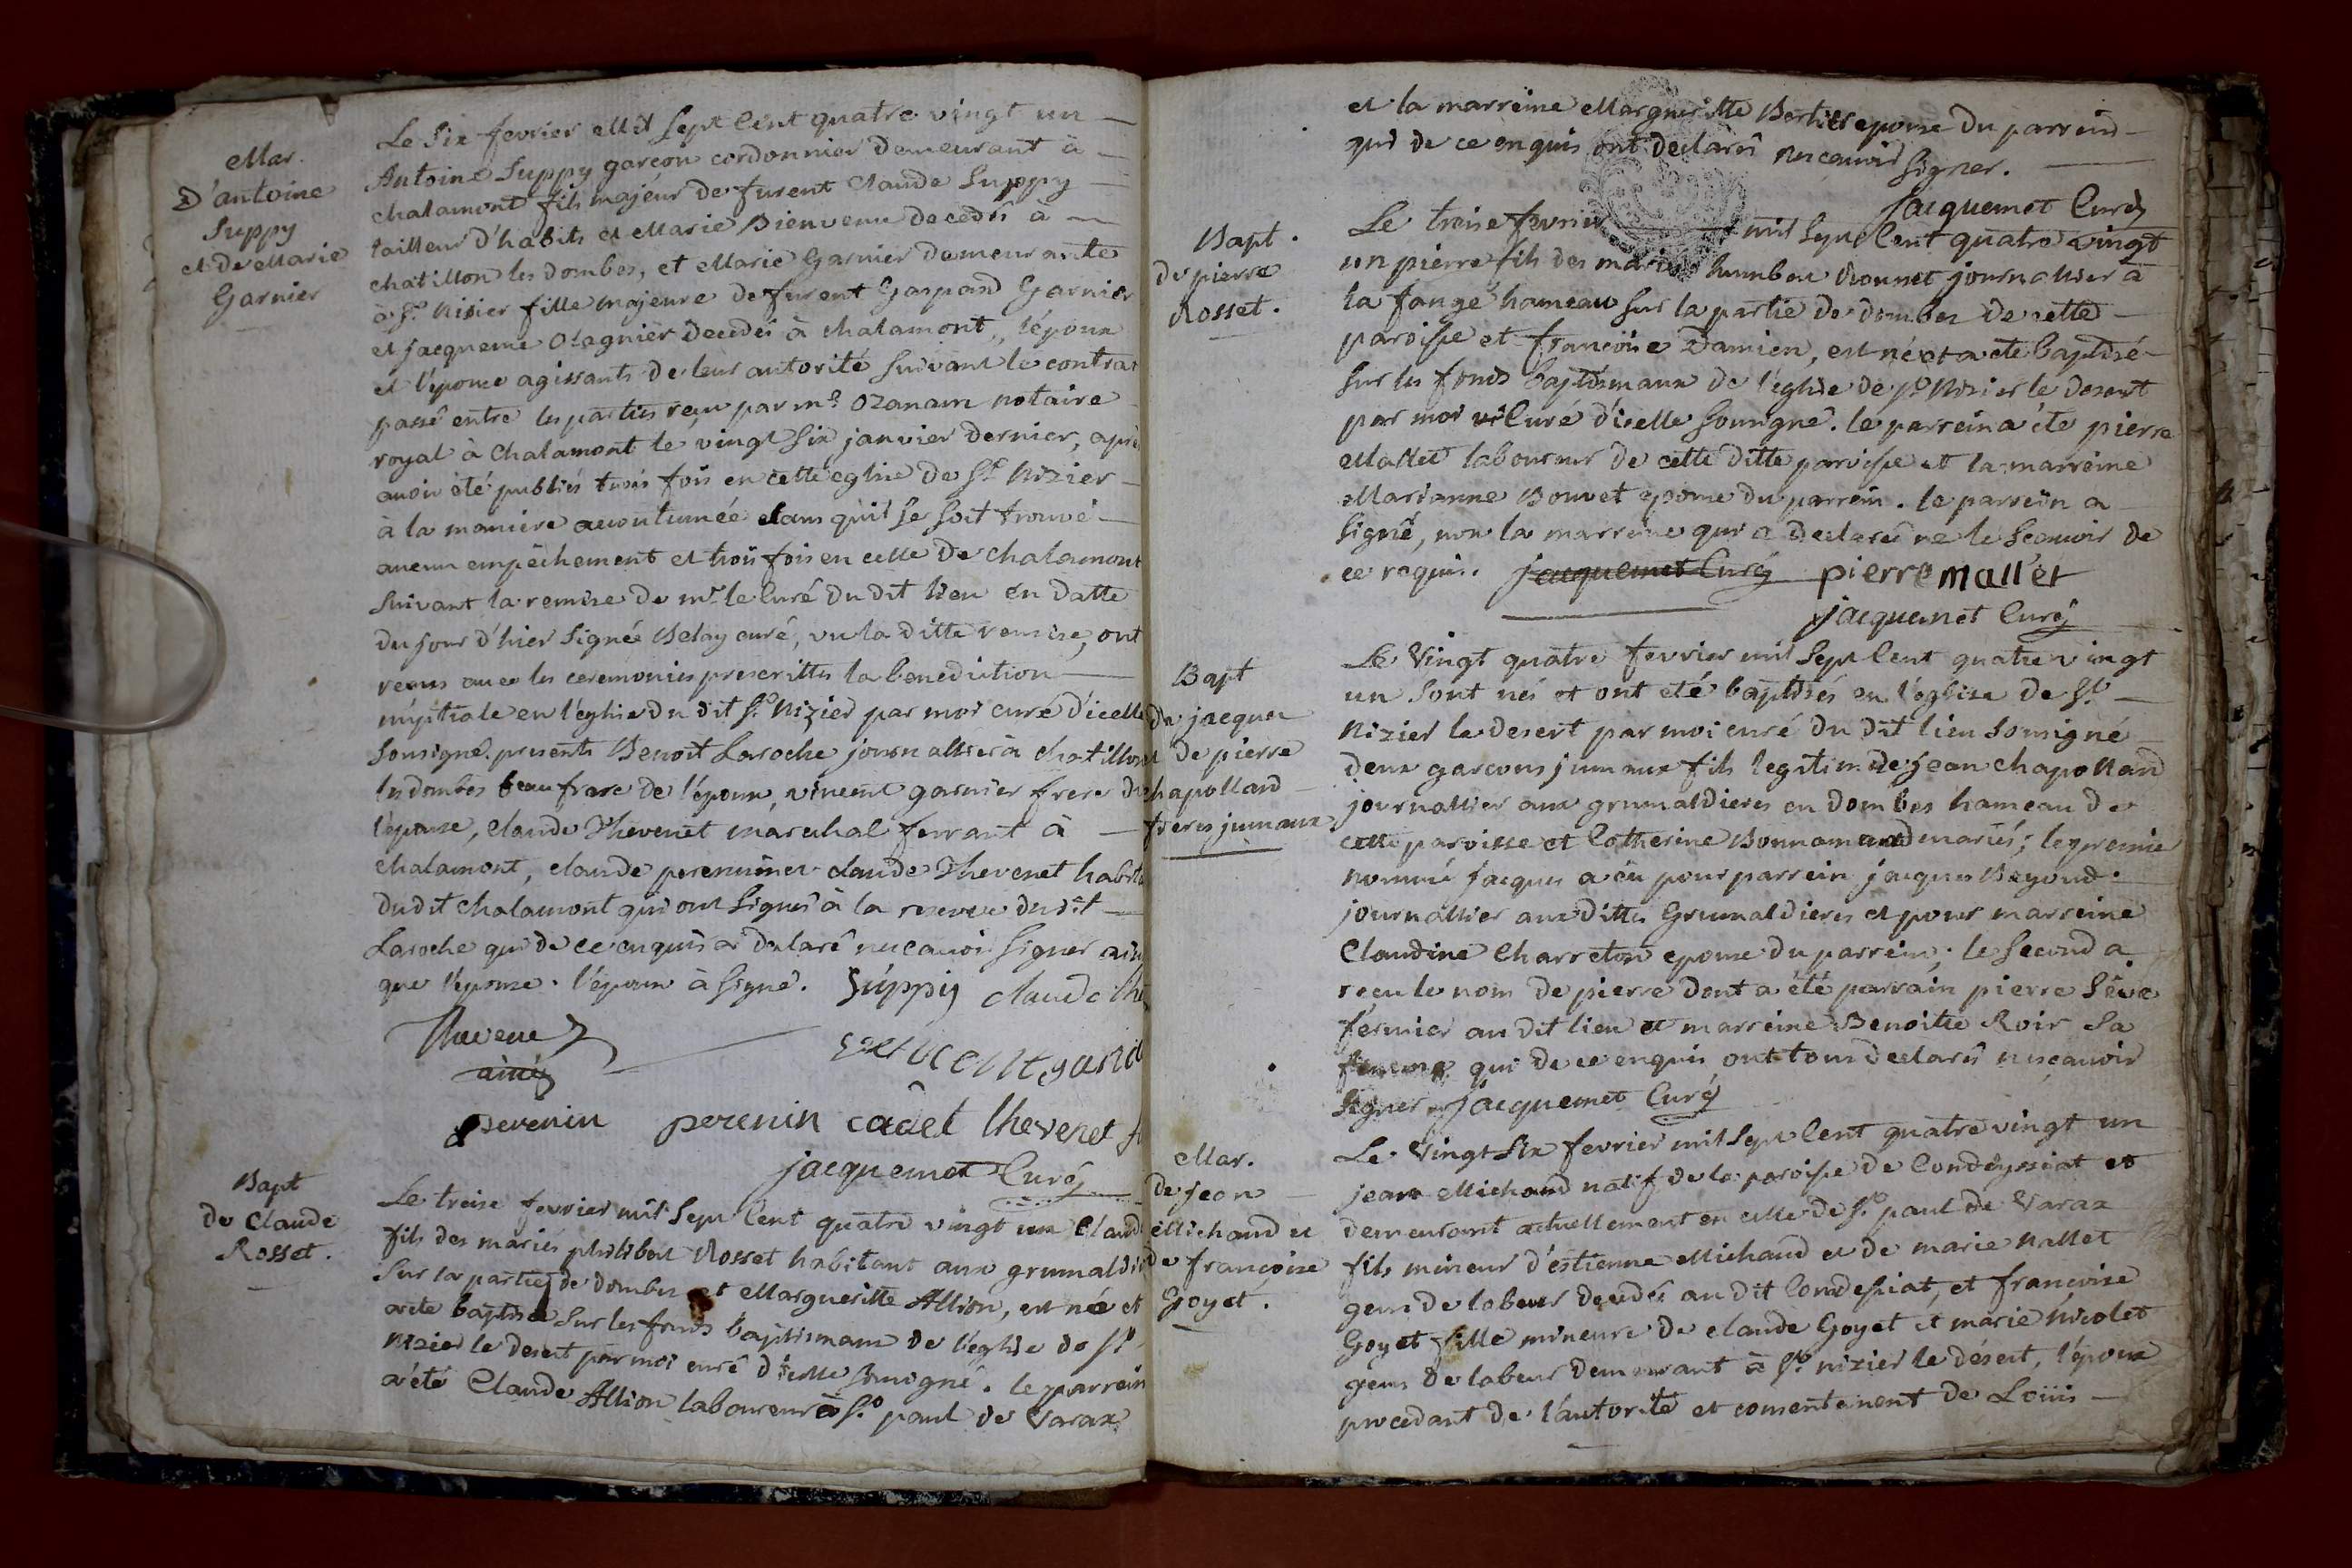 Mar.
D'antoine
Suppy
et de Marie
Garnier
Le Six fevrier Mil Sept Cent quatre vingt un
Antoine Suppy garçon cordonnier demeurant à
chalamont fils majeur de furent Claude Suppy
tailleur d'habits et Marie Bienvenu decedés à
chatillon les dombes, et Marie Garnier demeurante
à St. Nisier fille majeure de furent Gaspard Garnier
et jacqueme Olagnier decedés à chalamont, l'époux
et l'épouse agissants de leur autorité suivant le contrat
passé entre les parties reçu par me. Ozanam notaire
royal à Chalamont le vingt six janvier dernier, après
avoir été publiés trois fois en cette eglise de St. Nizier
à la maniere accoutumée sans qu'il se soit trouvé
aucun empêchement et trois fois en celle de chalamont
suivant la remise de mr. le Curé du dit lieu en datte
du jour d'hier signée Belay curé, vu la ditte remise, ont
recus avec les ceremonies prescrittes la benediction
nuptiale en l'eglise du dit St. Nizier par moi curé d'icelle
sousigné. presents Benoit Laroche journallier à chatillon
les dombes beau frere de l'époux, vincent garnier frere de
l'épouse, claude Thevenet marechal ferrant à
chalamont, claude perenin et claude Thevenet habita
dudit chalamont qui ont signés à la reserve dudit
Laroche qui de ce enquis a declaré ne scavoir signer ain
que l'épouse. l'époux à signé. Suppy claude the
Thevenet
ainé
vincent garni
perenin perenin cadet thevenet f
jacquemet Curé
Bapt
de Claude
Rosset.
Le treise fevrier mil Sept Cent quatre vingt un Claude
fils des mariés philibert Rosset habitant aux grumaldie
sur la partie de dombes et Margueritte Allion, est née et
a ete baptisé sur les fonds baptismaux de l'eglise de St.
Nizier le desert par moi curé d'icelle sousigné. le parrein
a été Claude Allion laboureur à St. paul de Varax
et la marreine Margueritte Bertier epouse du parrein
qui de ce enquis ont declarés ne scavoir
signer.
Jacquemet Curé
Bapt.
de pierre
Rosset.
Le treise fevrier mil Sept Cent quatre vingt
un pierre fils des mariés humbert Rosset journalier à
la fange hameau sur la partie de dombes de cette
paroisse et francoise Damien, est né et a ete baptisé
sur les fonds baptismaux de l'eglise de St. Nisier le desert
par moi curé d'icelle sousigné. le parrein a éte pierre
Mallet laboureur de cette ditte paroisse et la marreine
Marianne Bouvet epouse du parrein. le parrein a
signé, non la marreine qui a declaré ne le scavoir de
ce requis. jacquemet Curé pierre mallet
jacquemet Curé
Bapt
de jacques
et de pierre
chapolland
freres jumaux
Le Vingt quatre fevrier mil Sept Cent quatre vingt
un sont nés et ont eté baptisés en l'eglise de St.
Nizier le desert par moi curé du dit lieu sousigné
deux garcons jumaux fils legitim de Jean chapolland
journallier aux grumaldieres en dombes hameau de
cette paroisse et Catherine Bonnamand mariés; le premier
nommé Jacques a eu pour parrein jacques Bayoud
journallier aux dittes Grumaldieres et pour marreine
Claudine Charreton epouse du parrein; le second a
recu le nom de pierre dont a été parrain pierre Sêve
fermier au dit lieu et marreine Benoitte Roir sa
femme qui de ce enquis ont tous declarés ne scavoir
signer jacquemet Curé
Mar.
de Jean
Michaud et
de francoise
Goyet.
Le Vingt Six fevrier mil Sept Cent quatre vingt un
jean Michaud natif de la paroisse de Condeyssiat et
demeurant actuellement en celle de St. paul de Varax
fils mineur d'estienne Michaud et de marie Mallet
gens de labeur decedés au dit Condesiat, et francoise
Goyet fille mineure de claude Goyet et marie Nicolet
gens de labeur demeurant à St. nizier le désert, l'époux
procedant de l'autorité et consentement de Loüis